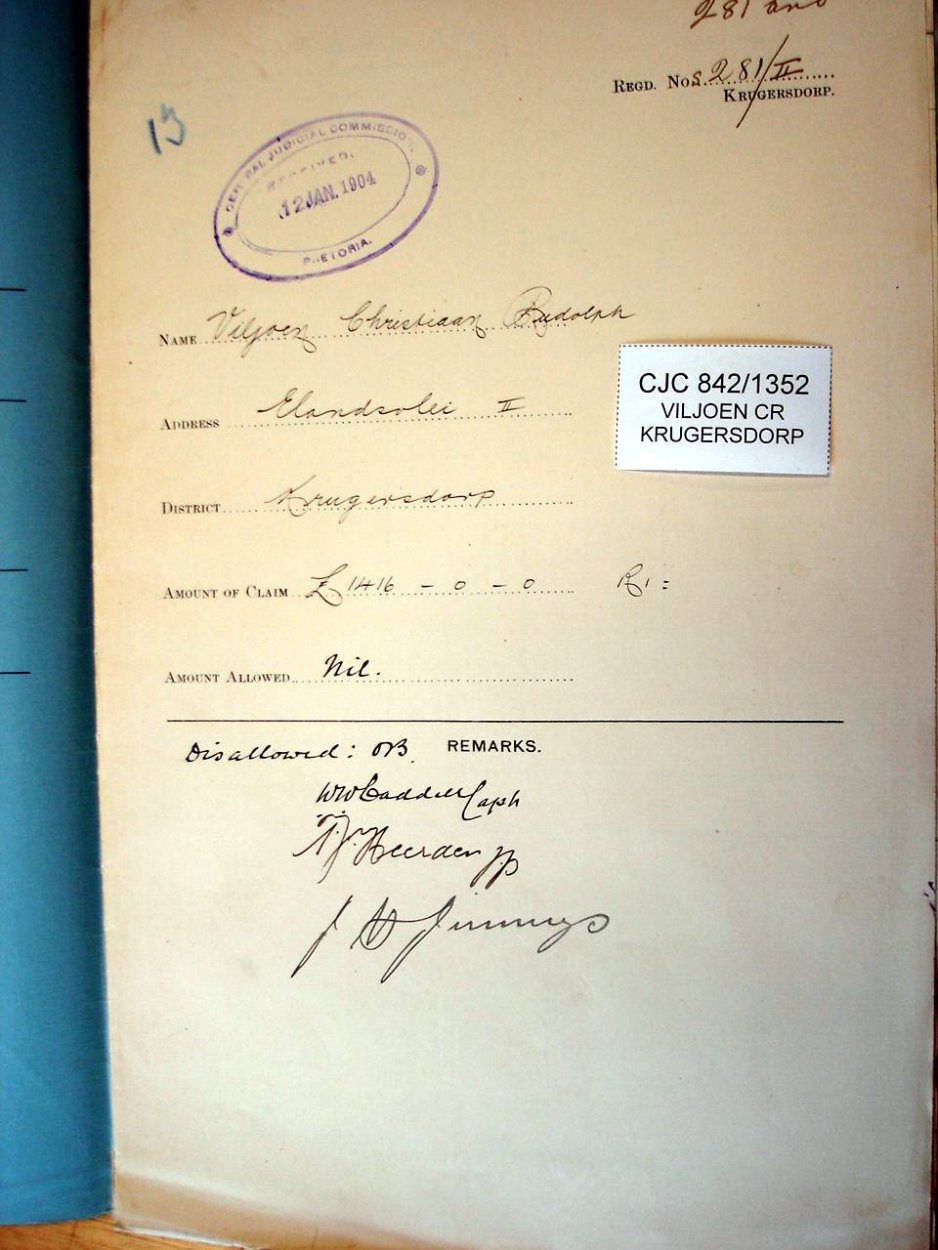 281 and
REGD. Nos 281/II
KRUGERSDORP.
15
CENTRAL JUDICIAL COMMISSION.
RECEIVED.
12 JAN. 1904
PRETORIA.
NAME Viljoen Christiaan Rudolph
CJC 842/1352
VILJOEN CR
KRUGERSDORP
ADDRESS Elandsvlei II
DISTRICT Krugersdorp
AMOUNT OF CLAIM £1416 - 0 - 0
AMOUNT ALLOWED Nil.
REMARKS.
Disallowed: OB.
Capt
Heerden JP
J H Jennings